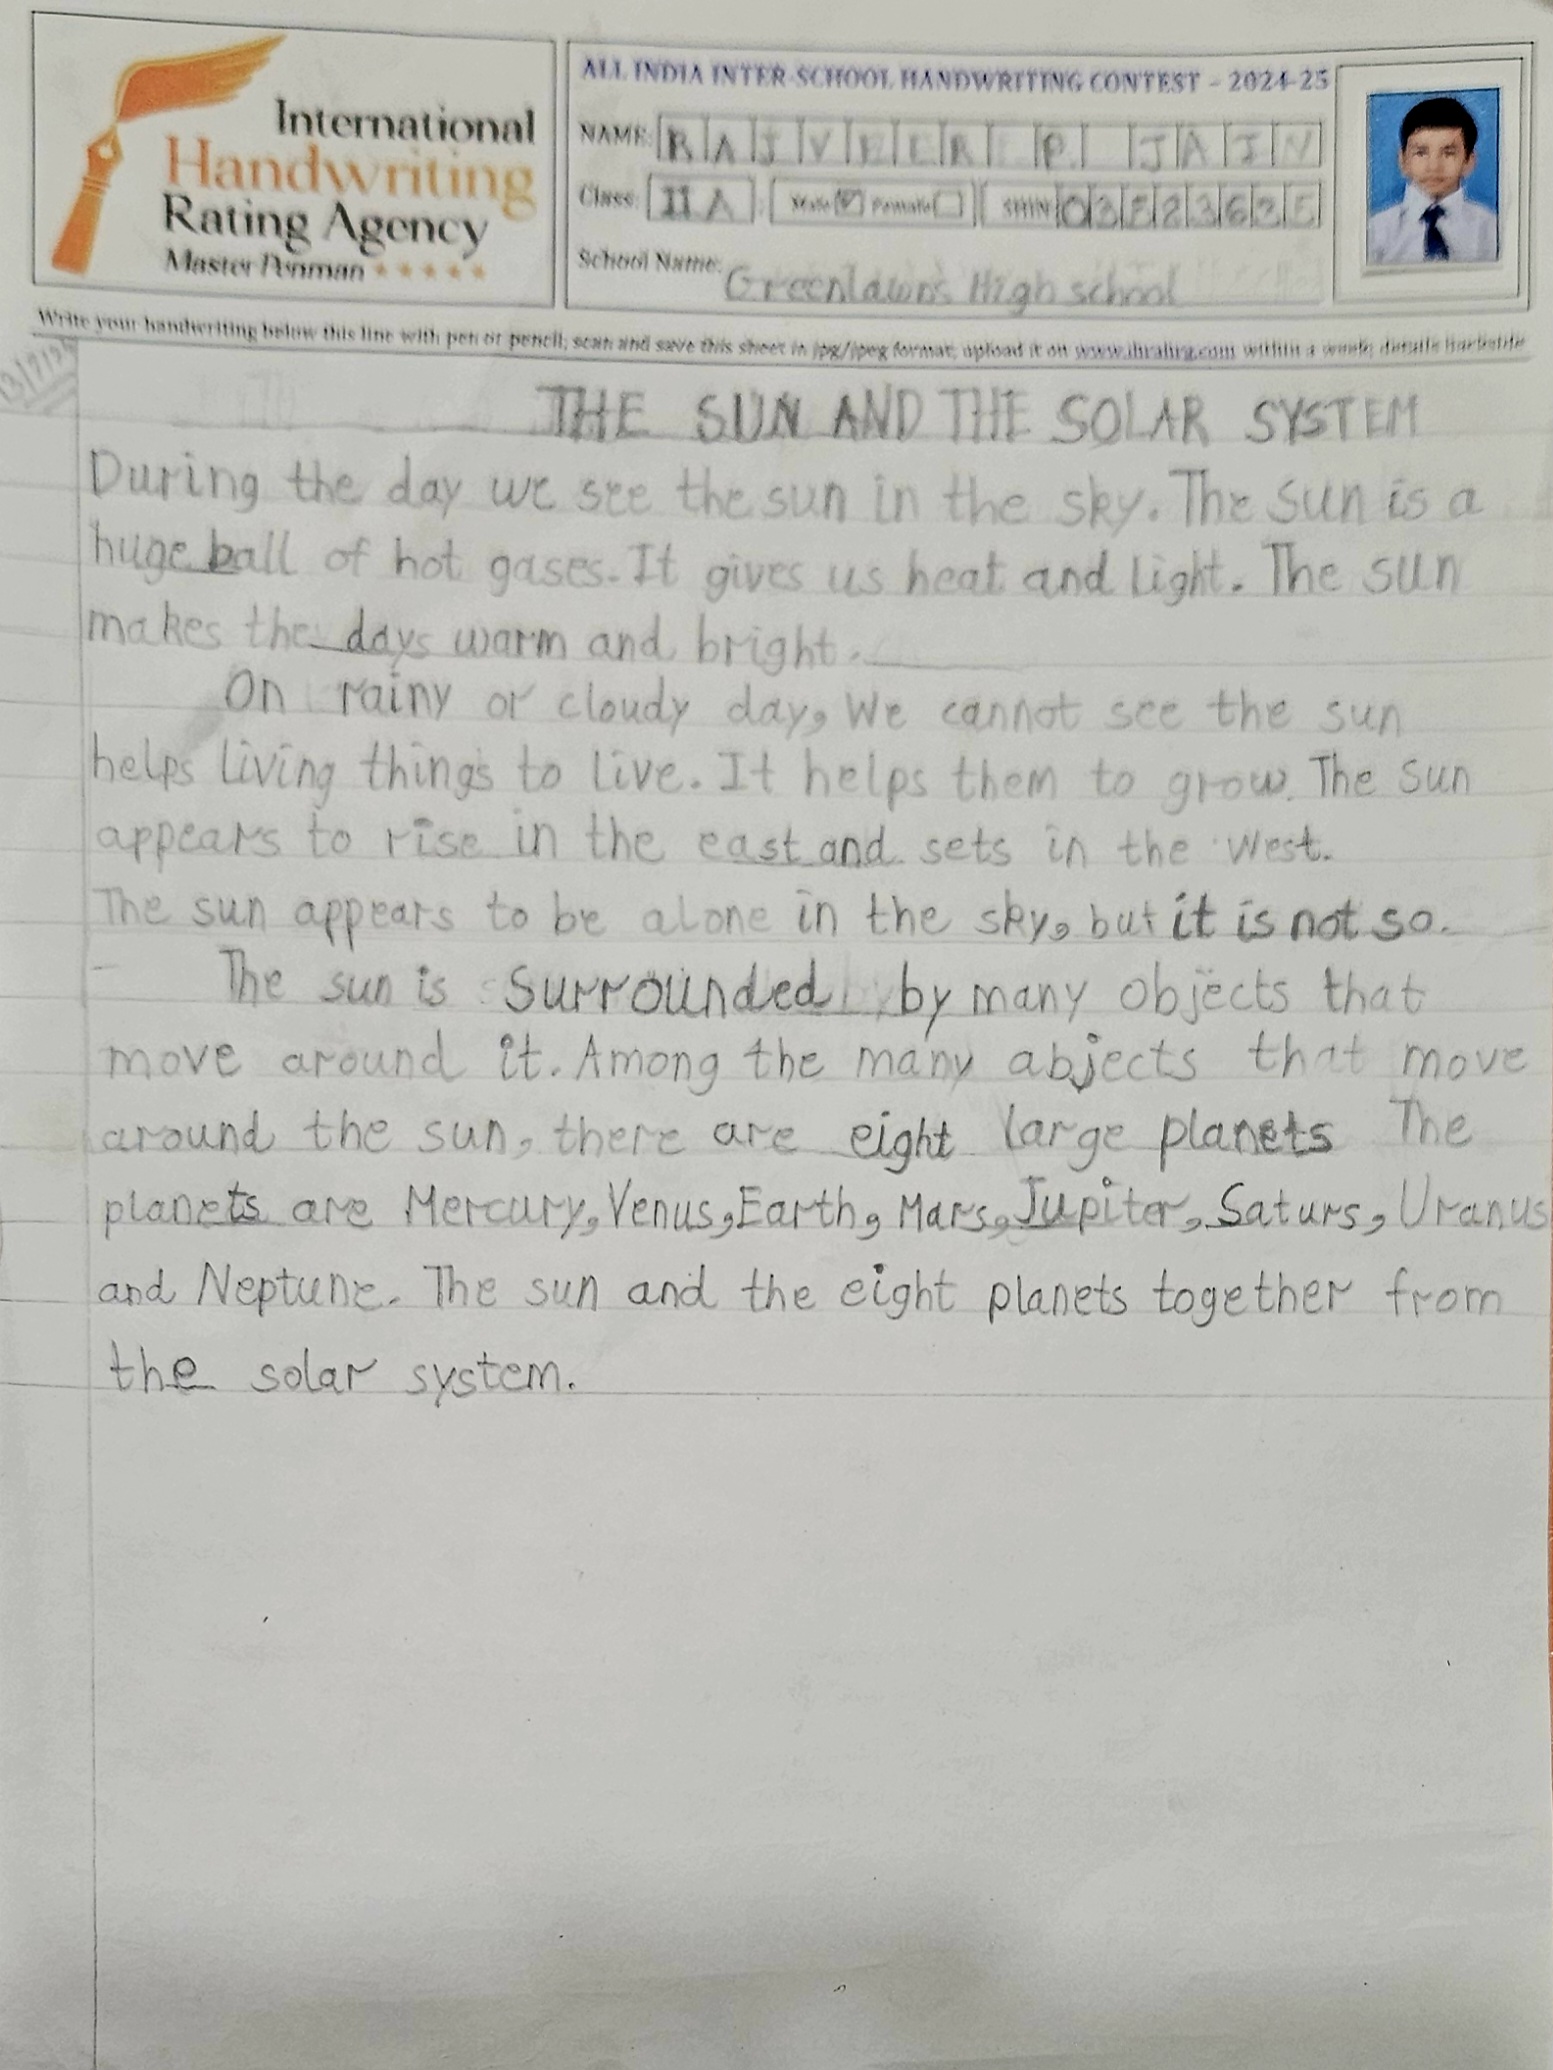 International
Handwriting
Rating Agency
Master Penman
ALL INDIA INTER-SCHOOL HANDWRITING CONTEST - 2024-25
NAME: RAJVEER P. JAIN
Class: II A Male Female SHIN
School Name: Greenlawns High school
Write your handwriting below this line with pen or pencil, scan and save this sheet in jpg/jpeg format, upload it on within a week; details backside
THE SUN AND THE SOLAR SYSTEM
During the day we see the sun in the sky. The sun is a
huge ball of hot gases. It gives us heat and light. The sun
makes the days warm and bright.
On rainy or cloudy day, We cannot see the sun
helps living things to live. It helps them to grow. The Sun
appears to rise in the east and sets in the West.
The sun appears to be alone in the sky, but it is not so.
The sun is Surrounded by many objects that
move around it. Among the many abjects that move
around the sun, there are eight large planets The
planets are Mercury, Venus, Earth, Mars, Jupiter, Saturs, Uranus
and Neptune. The sun and the eight planets together from
the solar system.